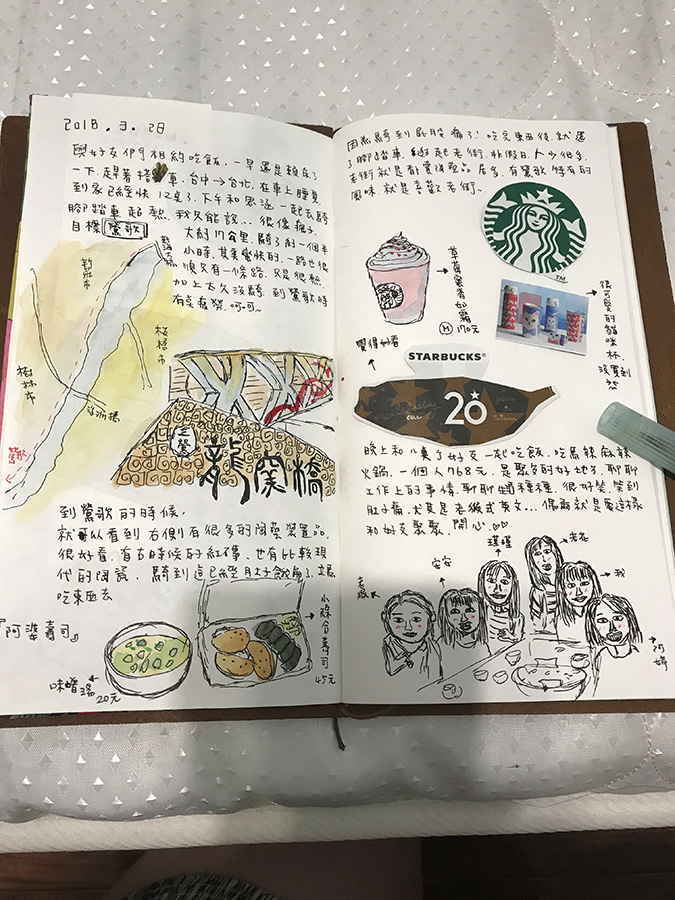 2018.3.28
與好友們相約吃飯,一早還是賴床了
一下,趕著搭車,台中→台北,在車上睡覺
到家已經快12點了,下午和思涵一起去騎
腳踏車,超熱,我只能說...很像瘋子
目標 鶯歌
大約17公里,騎了約一個半
小時,其實蠻快的,一路也很
順只有一條路,只是很熱,
加上太久沒騎,到鶯歌時
有點疲勞,呵呵~
新莊市
板橋市
樹林市
鶯歌
三鶯
龍窯橋
到鶯歌的時候,
就可以看到右側有很多的陶藝裝置品,
很好看,有古時候的紅磚,也有比較現
代的陶瓷,騎到這已經肚子餓扁了,立馬
吃東西去
『阿婆壽司』
味噌湯
20元
小綜合壽司
45元
因為騎到屁股痛了!吃完東西後,就還
了腳踏車,逛起老街,非假日人少很多,
老街就是都賣陶瓷品居多,有鶯歌特有的
風味,就是喜歡老街~
TM
草莓蜜香如霜
M 170元
很可愛的貓咪杯
沒買到
覺得好看
STARBUCKS®
20
years
晚上和一票好友一起吃飯,吃馬辣麻辣
火鍋,一個人768元,是聚會的好地方,聊聊
工作上的事情,聊聊種種,很好笑,笑到
肚子痛,尤其是老師式英文...偶爾就是要這樣
和好友聚聚,開心♡♡
安安
瑾瑾
老花
我
阿婷